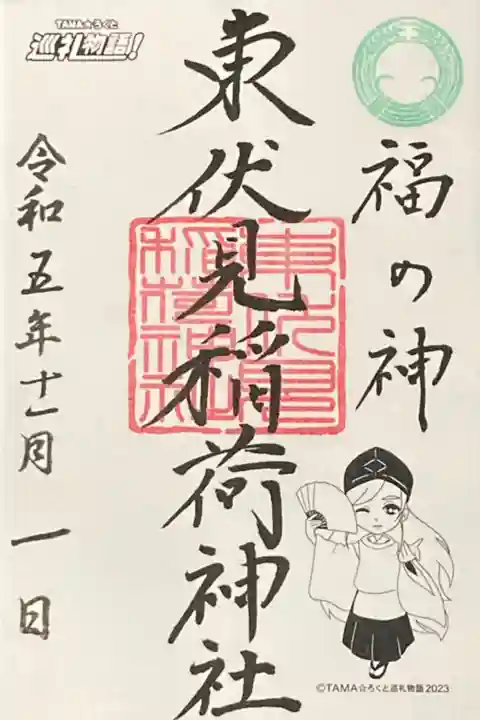 TAMA☆ろくと
巡礼物語！
福の神
東伏見稲荷神社
令和五年十一月一日
東伏見稲荷神社
©TAMA☆ろくと巡礼物語2023